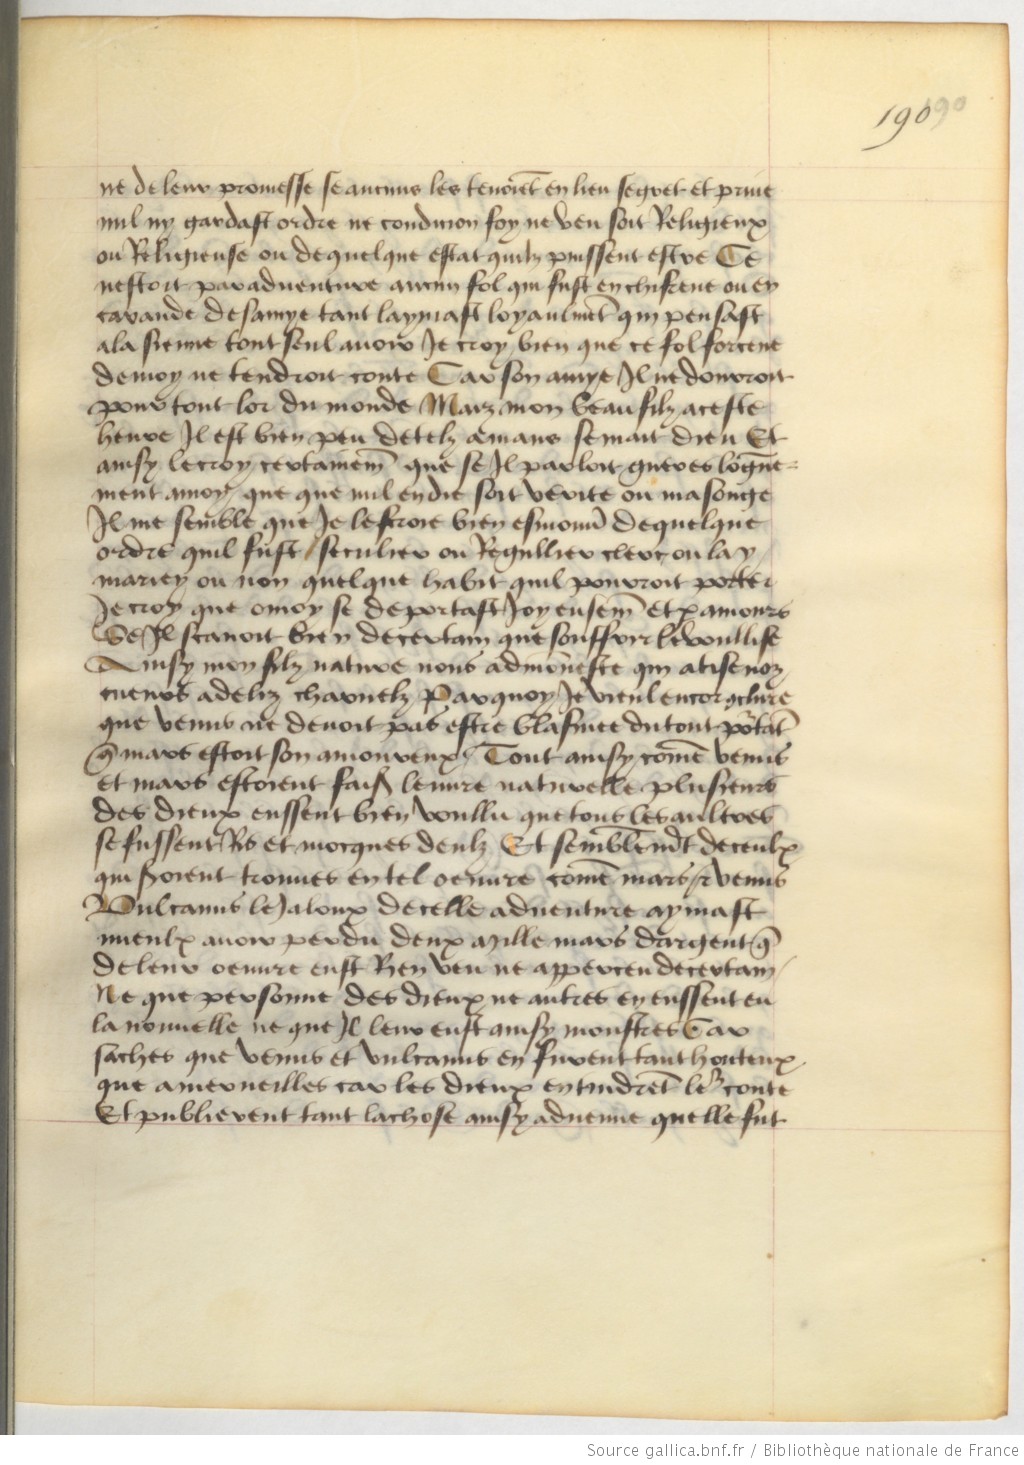 190 90
ne de leur promesse se aucuns les tenoiēt en lieu segret et priue
nul ny gardast ordre ne condicion foy ne veu soit Religieux
ou Religieuse ou de quelque estat quilz puissent estre Ce
nestoit par aduenture aucun fol qui fust en chifrene ou en
garande de samye tant laymast loyaulmēt qui pensast
a la sienne tout seul auoir Je croy bien que ce fol forcene
de moy ne tendroit conte Car son amye Il ne donroit
pour tout lor du monde Maiz mon beau filz a ceste
heure Il est bien peu de telz amans se mait dieu Et
ainsy le croy certainem̄ que se Il parloit gueres lōgue=
ment a moy que que nul en die soit verite ou masonge
Il me semble que Je le feroie bien esmouuoir de quelque
ordre quil fust / seculier ou Regullier clerc ou lay
mariey ou non quelque habit quil pouroit porter
Je croy que o moy se deportast Joyeusem̄ et p amours
Se Il scauoit bien de certain que souffrir le voullise
Ainsy mon filz nature nous admōneste qui atise noz
cueurs a deliz charnelz Par quoy Je vieul encor 9clure
que venus ne deuoit pas estre blasmee du tout portāt
q̄ mars estoit son amoureux / Tout ainsy cōme venus
et mars estoient fais leuure naturelle plusieurs
des dieux eussent bien voullu que tous les aultres
se fussent Ris et mocques deulz Et semblemēt de ceulx
qui seroient trouues en tel oeuure cōme mars et venus
Vulcanus le Jaloux de celle aduenture aymast
mieulx auoir perdu deux mille mars dargent q̄
de leur oeuure eust Rien veu ne apperceu de certain /
Ne que personne des dieux ne autres en eussent eu
la nouuelle ne que Il leur eust ainsy monstres Car
saches que venus et vulcanus en furent tant honteux
que a merueilles car les dieux en tindrēt leʳ conte
Et publierent tant la chose ainsy aduenue quelle fut
Source gallica.bnf.fr / Bibliothèque nationale de France